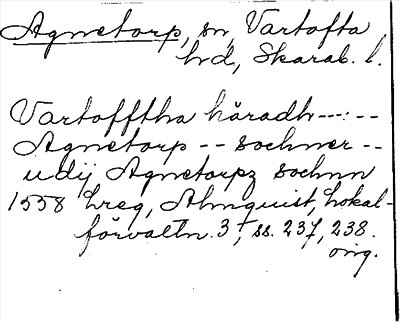 Agnetorp, sn, Vartofta
hd, Skarab. l.
Vartofftha häradh --:--
Agnetorp -- sochner --
udij Agnetorpz sochnn
1558 hreg, Almquist, Lokal-
förvaltn. 3†, ss. 237, 238.
orig.